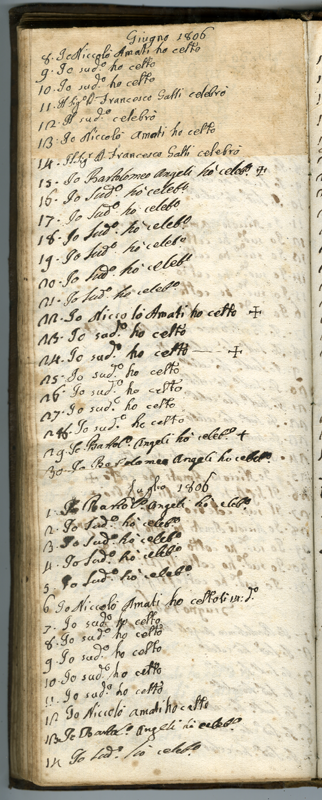 Giugno 1806
8. Io Niccolò Amati ho celto
9. Io sud.º ho celto
10. Io sud.º ho celto
11. Il Sig.e D. Francesco Galli celebrò
12. Il sud.º celebrò
13. Io Niccolò Amati ho celto
14. Il Sig.e D. Francesco Galli celebrò
15. Io Bartolomeo Angeli ho celeb.º
16. Io sud.º ho celeb.º
17. Io sud.º ho celeb.º
18. Io sud.º ho celeb.º
19. Io sud.º ho celeb.º
20. Io sud.º ho celeb.º
21. Io sud.º ho celeb.º
22. Io Niccolò Amati ho celto +
23. Io sud.º ho celto
24. Io sud.º ho celto — +
25. Io sud.º ho celto
26. Io sud.º ho celto
27. Io sud.º ho celto
28. Io sud.º ho celto
29. Io Bartol.º Angeli ho celeb.º +
30. Io Bartolomeo Angeli ho celeb.º
Luglio 1806
1. Io Bartol.º Angeli ho celeb.º
2. Io sud.º ho celeb.º
3. Io sud.º ho celeb.º
4. Io sud.º ho celeb.º
5. Io sud.º ho celeb.º
6. Io Niccolò Amati ho celto
7. Io sud.º ho celto
8. Io sud.º ho celto
9. Io sud.º ho celto
10. Io sud.º ho celto
11. Io sud.º ho celto
12. Io Niccolò Amati ho celto
13. Io Bartol.º Angeli ho celeb.º
14. Io sud.º ho celeb.º